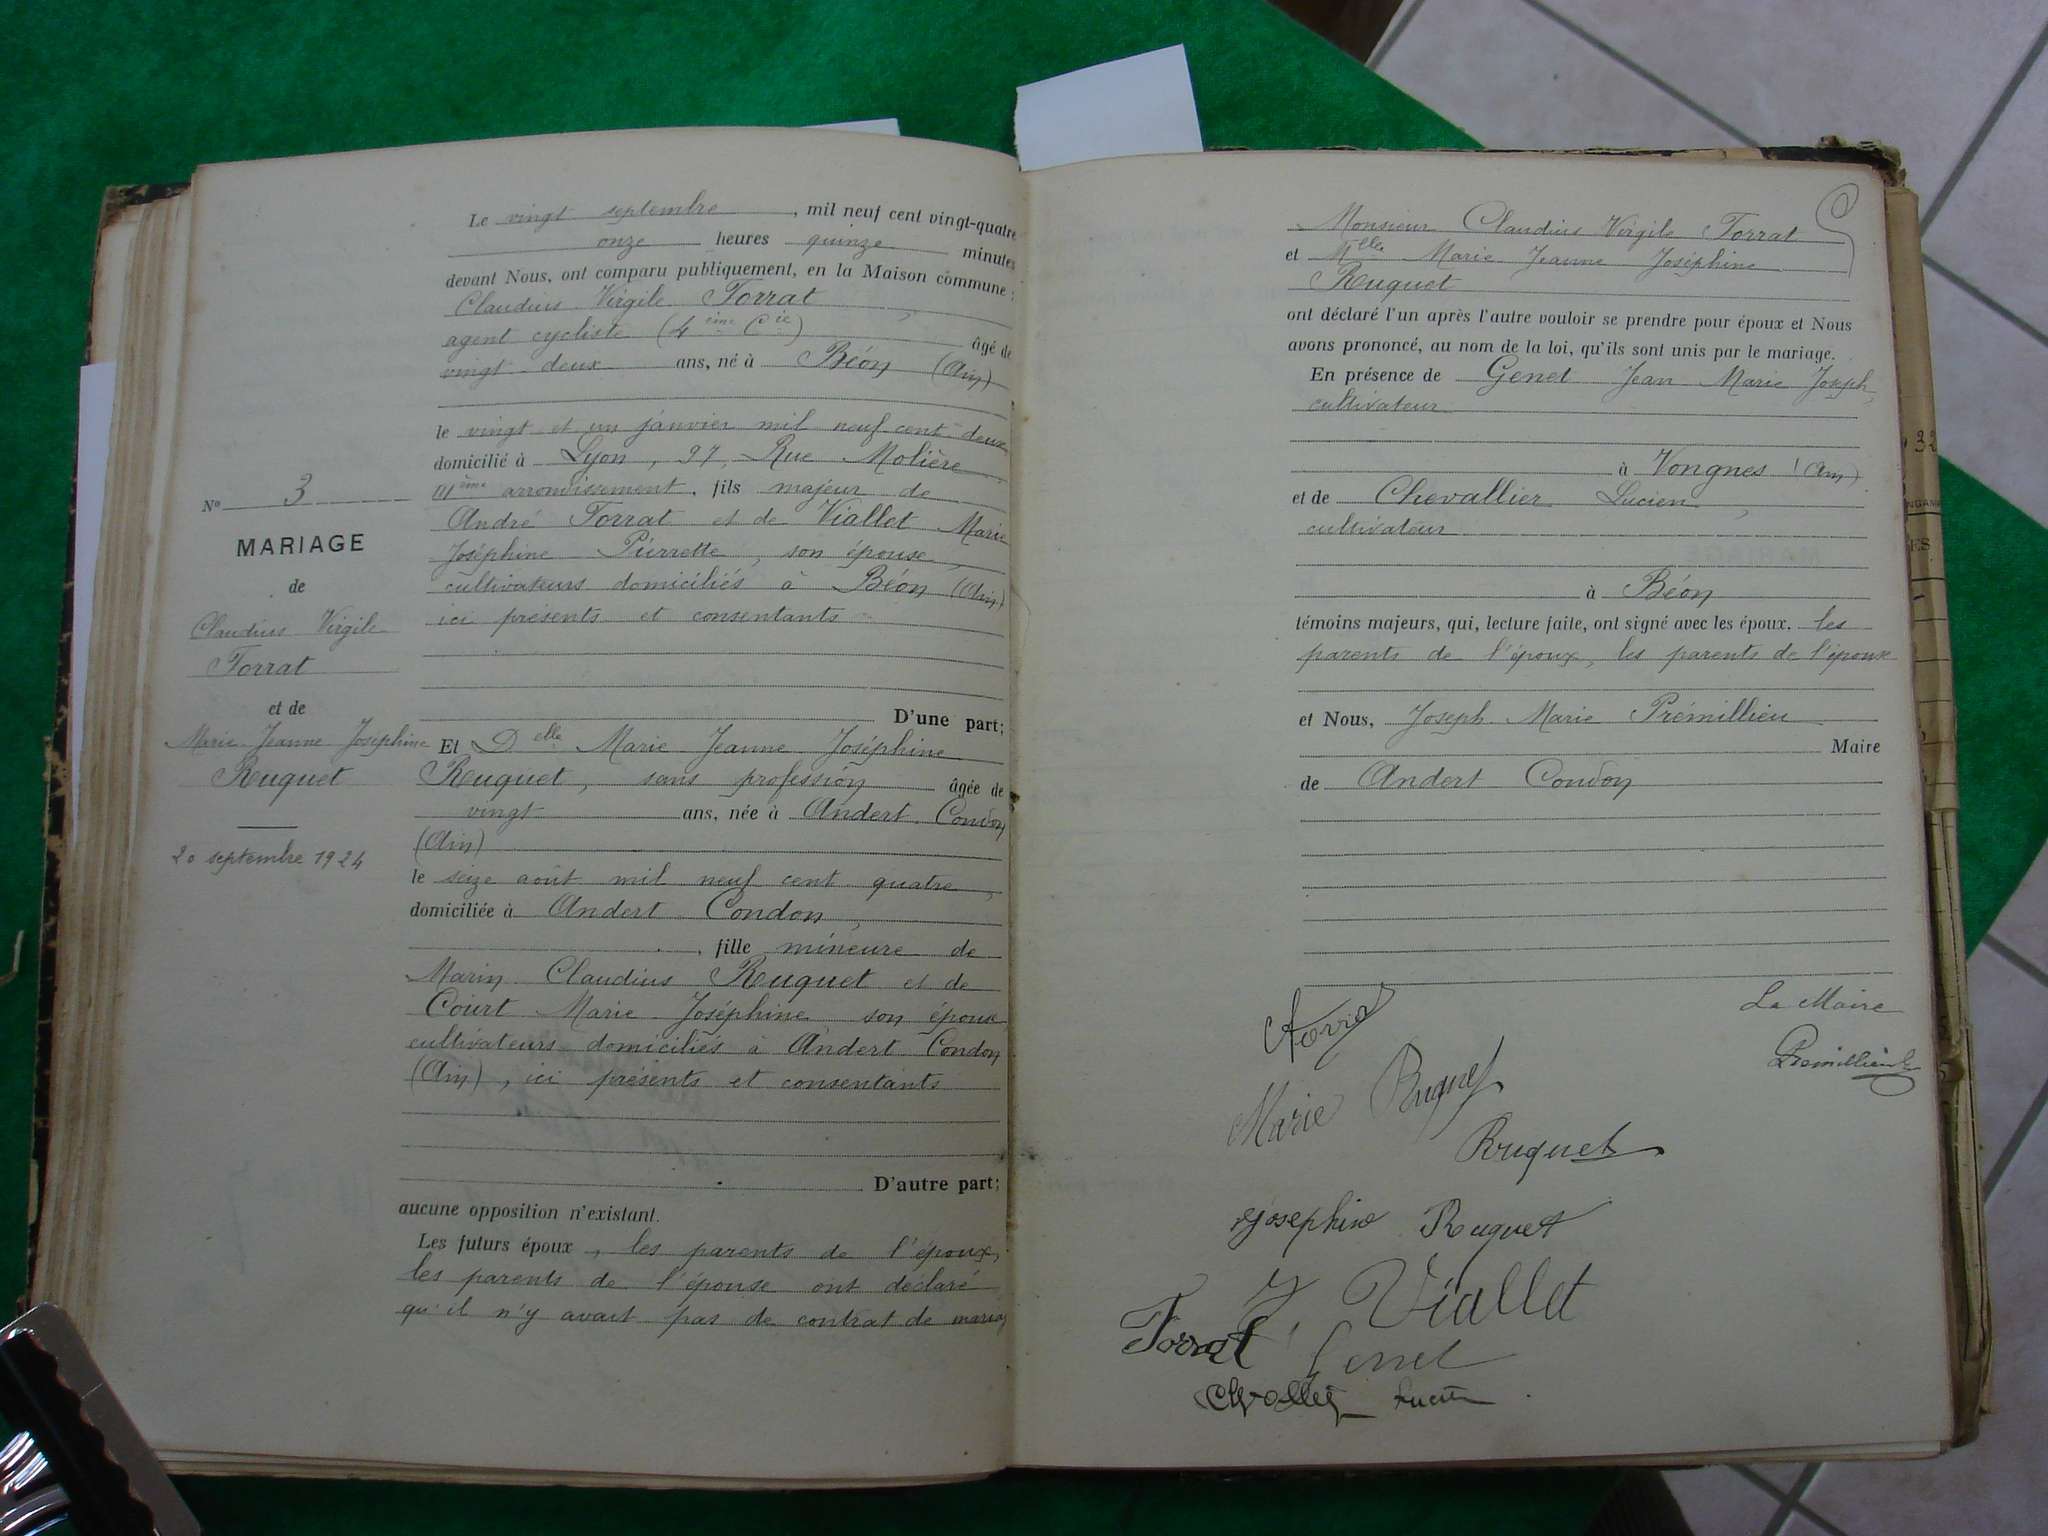 N° 3
MARIAGE
de
Claudius Virgile
Torrat
et de
Marie Jeanne Joséphine
Ruquet
20 septembre 1924
Le vingt septembre, mil neuf cent vingt-quatre
onze heures quinze minutes
devant Nous, ont comparu publiquement, en la Maison commune :
Claudius Virgile Torrat,
agent cycliste (4ème Cie) âgé de
vingt deux ans, né à Béon (Ain)
le vingt et un janvier mil neuf cent deux
domicilié à Lyon, 97, Rue Molière
IIIème arrondissement, fils majeur de
André Torrat et de Viallet Marie
Joséphine Pierrette, son épouse,
cultivateurs domiciliés à Béon (Ain)
ici présents et consentants
D'une part;
Et Delle Marie Jeanne Joséphine
Ruquet, sans profession âgée de
vingt ans, née à Andert Condon
(Ain)
le seize août mil neuf cent quatre,
domiciliée à Andert Condon,
, fille mineure de
Marin Claudius Ruquet et de
Court Marie Joséphine son épouse
cultivateurs domiciliés à Andert Condon
(Ain), ici présents et consentants
D'autre part;
aucune opposition n'existant.
Les futurs époux, les parents de l'époux,
les parents de l'épouse ont déclaré
qu'il n'y avait pas de contrat de mariag
Monsieur Claudius Virgile Torrat
et Melle Marie Jeanne Joséphine
Ruquet
ont déclaré l'un après l'autre vouloir se prendre pour époux et Nous
avons prononcé, au nom de la loi, qu'ils sont unis par le mariage.
En présence de Genet Jean Marie Joseph,
cultivateur
à Vongnes (Ain)
et de Chevallier Lucien,
cultivateur
à Béon
témoins majeurs, qui, lecture faite, ont signé avec les époux, les
parents de l'époux, les parents de l'épouse
et Nous, Joseph Marie Prémillieu
Maire
de Andert Condon
Le Maire
Torrat
Premillieu
Marie Ruquet
Ruquet
Josephine Ruquet
J Viallet
Torrat
Genet
Chevallier Lucien